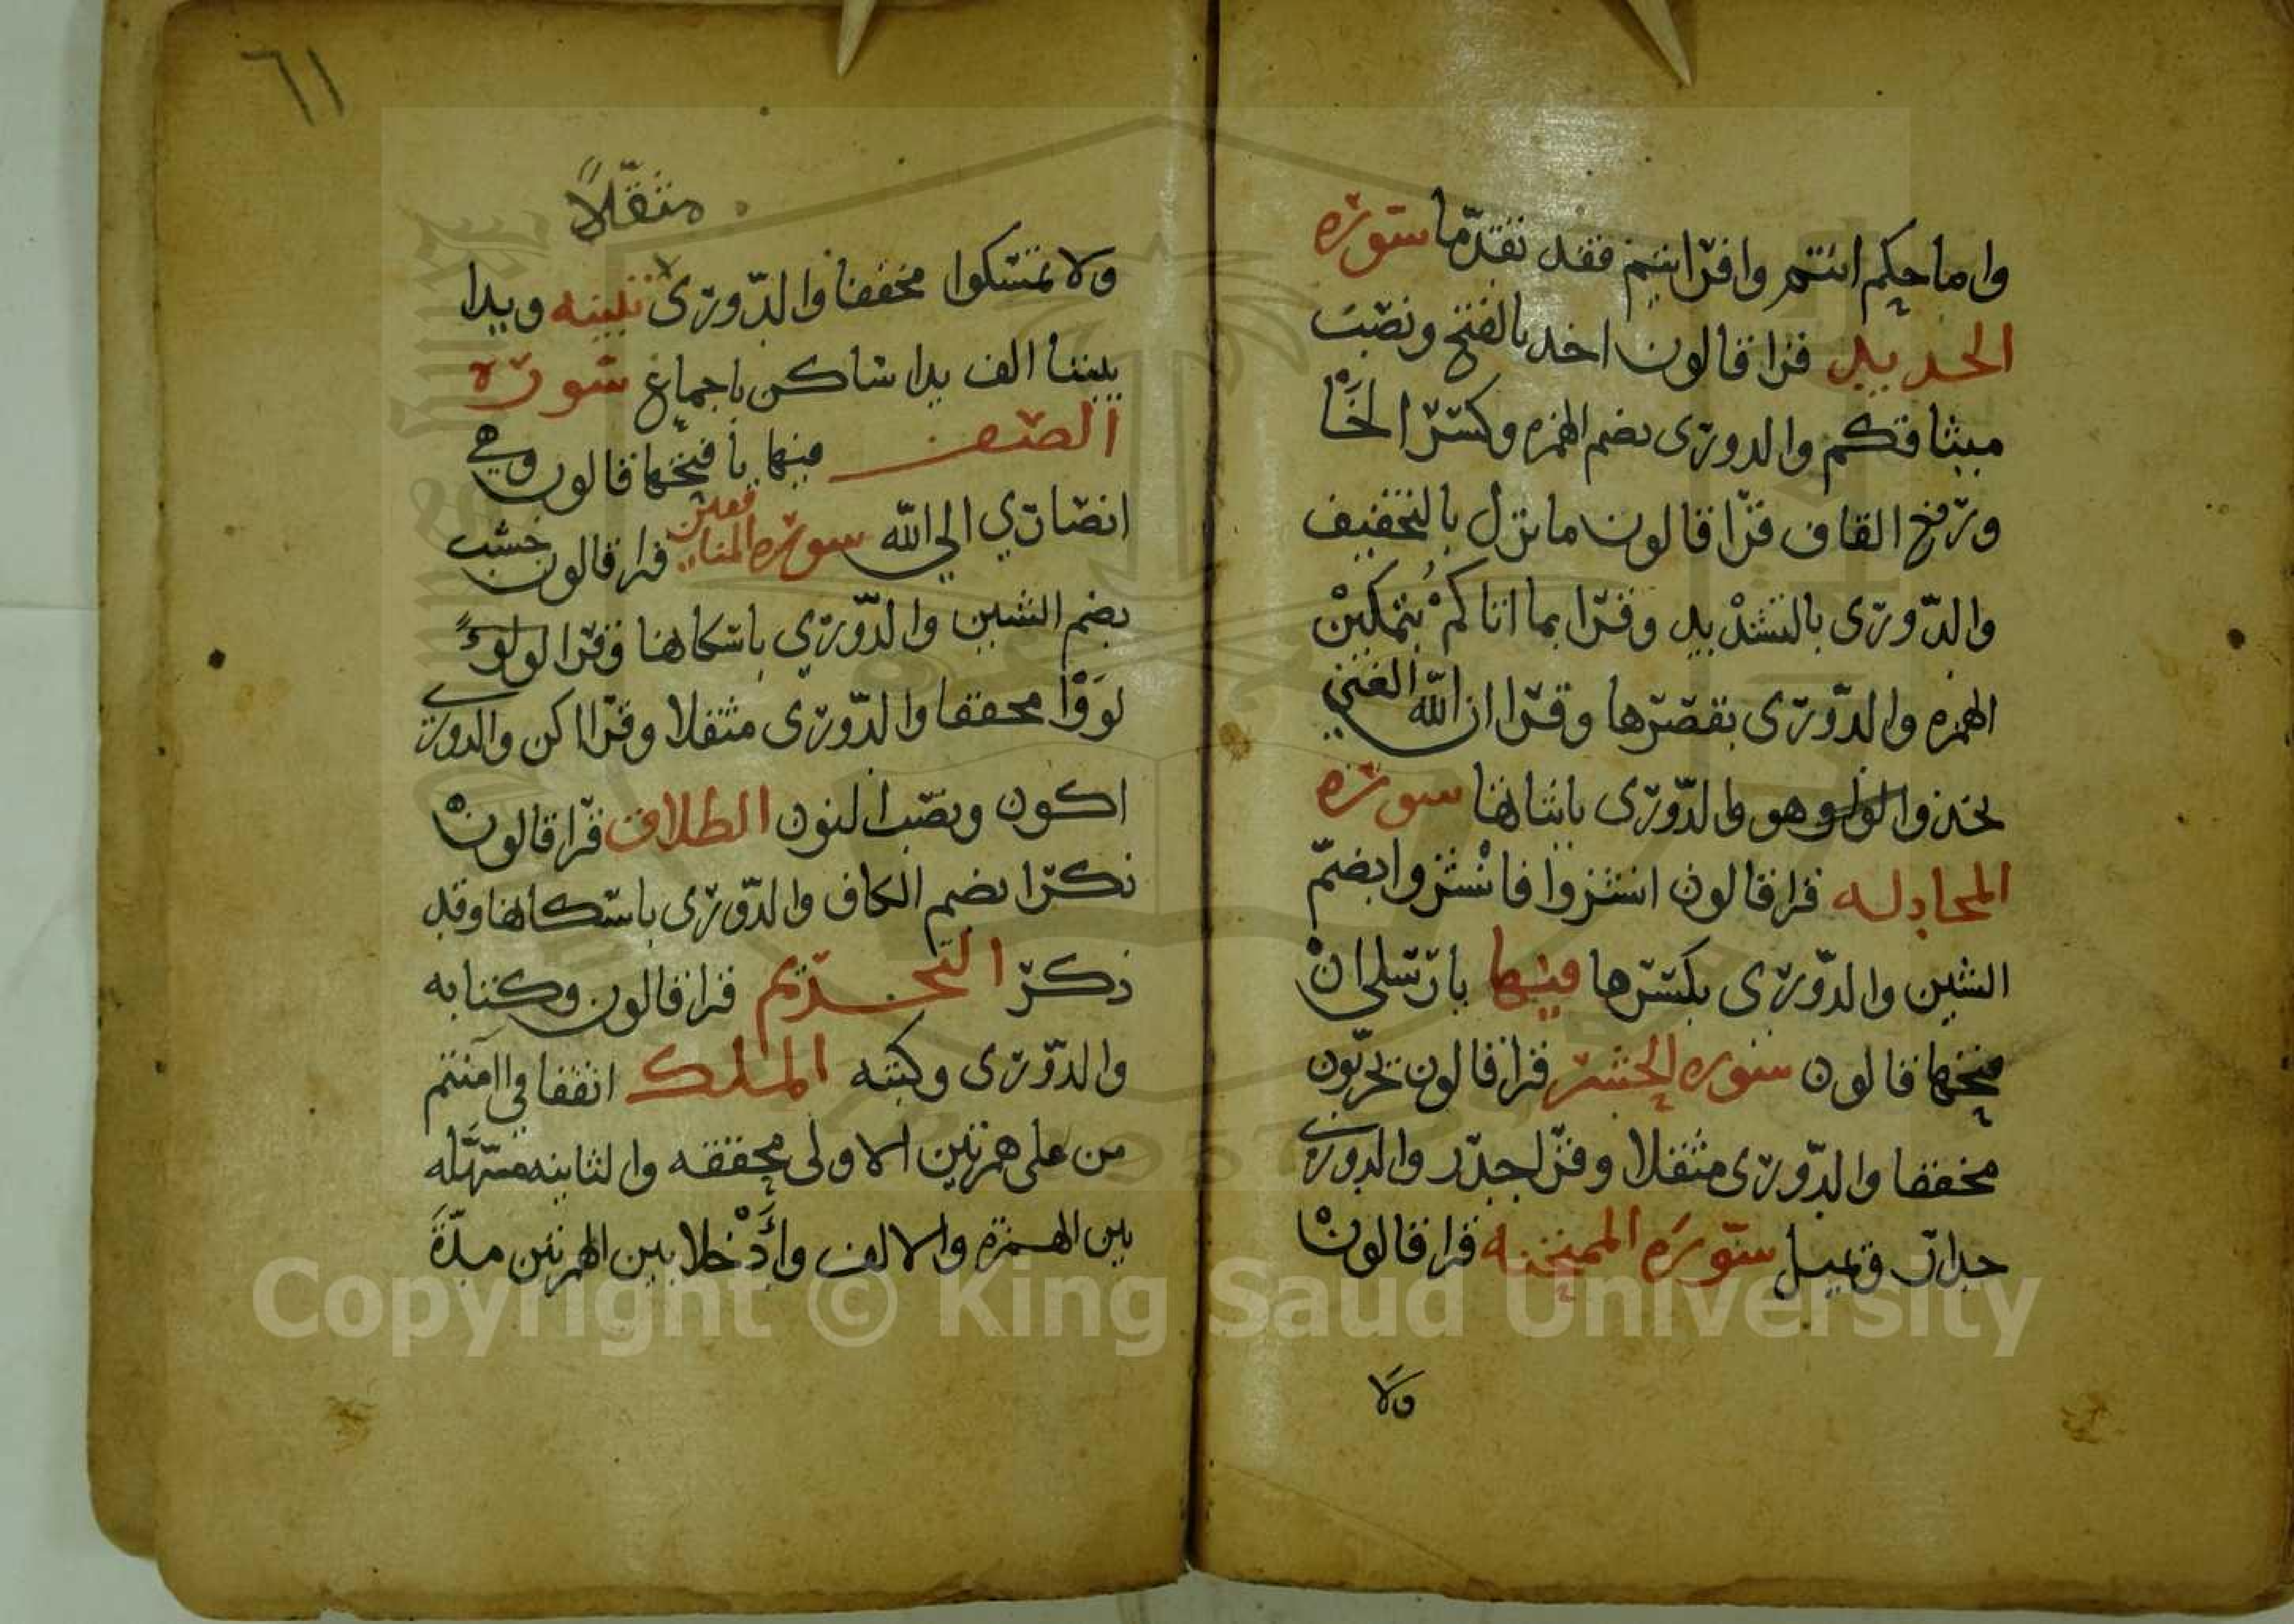 واما حكم ائنتم وافرايتم فقد تقدما سوره
الحديد قرا قالون اخذ بالفتح ونصب
ميثاقكم والدورى بضم الهمزه وكسر الخا
ورفع القاف قرا قالون ما نزل بالتخفيف
والدورى بالتشديد وقرا بما اتاكم بتمكين
الهمزه والدورى بقصرها وقرا ان الله الغني
بحذف الواو وهو والدورى باثباتها سوره
المجادله قرا قالون انشزوا فانشزوا بضم
الشين والدورى بكسرها فيها يا رسلي ان
فتحها قالون سوره الحشر قرا قالون يخربون
مخففا والدورى مثقلا وقرا جدر والدورى
جدار ويميل سوره الممتحنه قرا قالون
ولا
٦١
مثقلا
ولا تمسكوا مخففا والدورى تنبيه وبدا
بيننا الف بدا ساكن باجماع سوره
الصف فيها يا فتحها قالون وهي
انصاري الى الله سوره المنافقين قرا قالون خشب
بضم الشين والدوري باسكانها وقرا لولوا
لووا مخففا والدورى مثقلا وقرا اكن والدورى
اكون ونصب النون الطلاق قرا قالون
نكرا بضم الكاف والدورى باسكانها وقد
ذكر التحريم قرا قالون وكتابه
والدورى وكتبه الملك اتفقا في اامنتم
من على همزتين الاولى محققه والثانيه مسهله
بين الهمزه والالف وادخلا بين الهمزتين مدة
Copyright © King Saud University